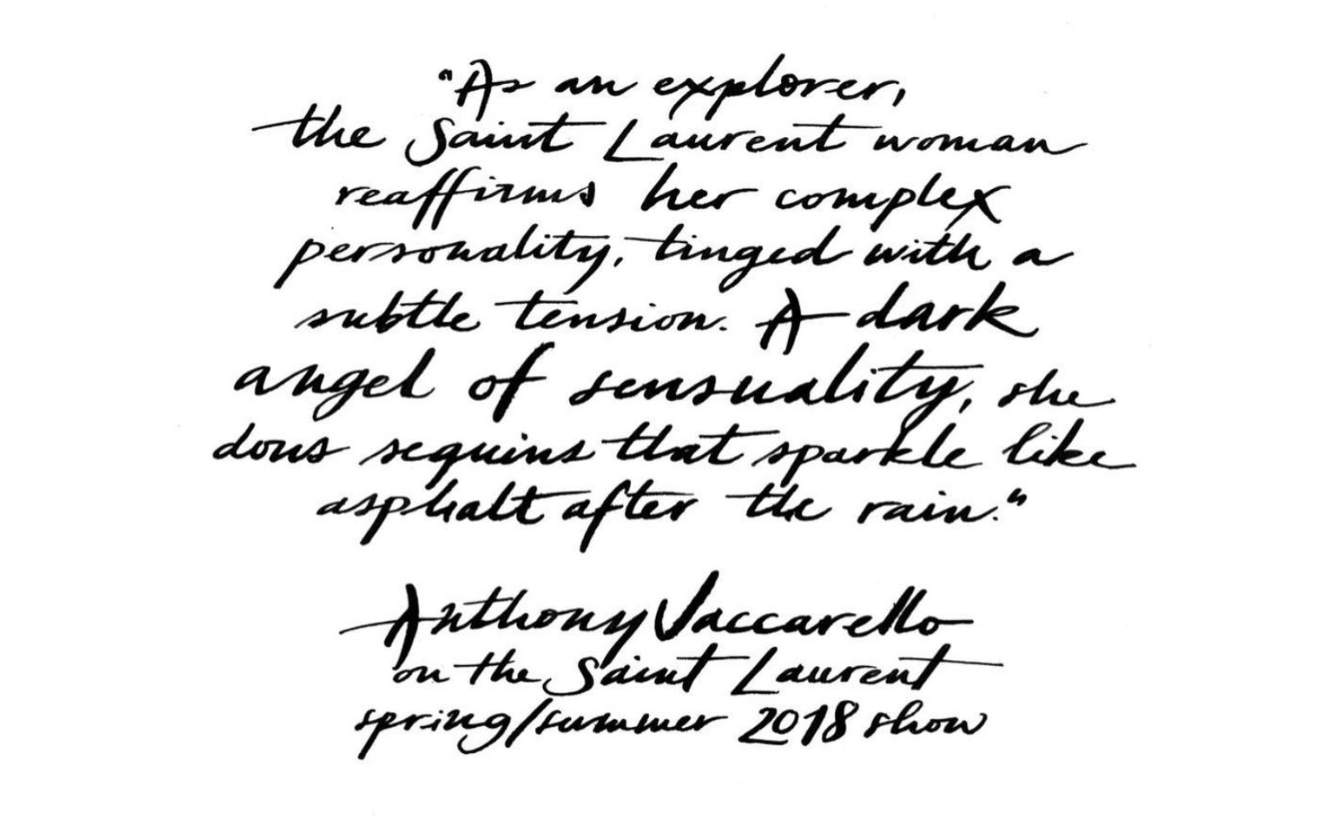 "As an explorer,
the Saint Laurent woman
reaffirms her complex
personality, tinged with a
subtle tension. A dark
angel of sensuality, she
dons sequins that sparkle like
asphalt after the rain."
Anthony Vaccarello
on the Saint Laurent
spring/summer 2018 show